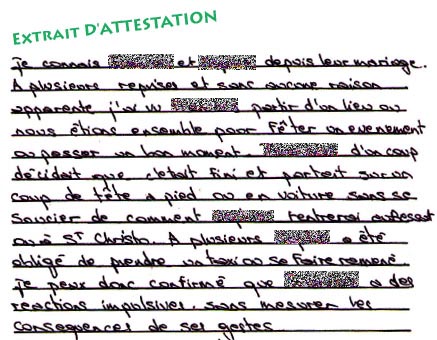 EXTRAIT D'ATTESTATION
Je connais et depuis leur mariage.
A plusieurs reprises et sans aucune raison
apparente j'ai vu partir d'un lieu ou
nous étions ensemble pour fêter un evenement
ou passer un bon moment. d'un coup
décidait que c'etait fini et partait sur un
coup de tête a pied ou en voiture sans se
soucier de comment rentrerai
ou a St Christo. A plusieurs a été
obligé de prendre un taxi ou se faire ramené
Je peux donc confirmé que a des
reactions impulsives sans mesurer les
consequences de ses gestes